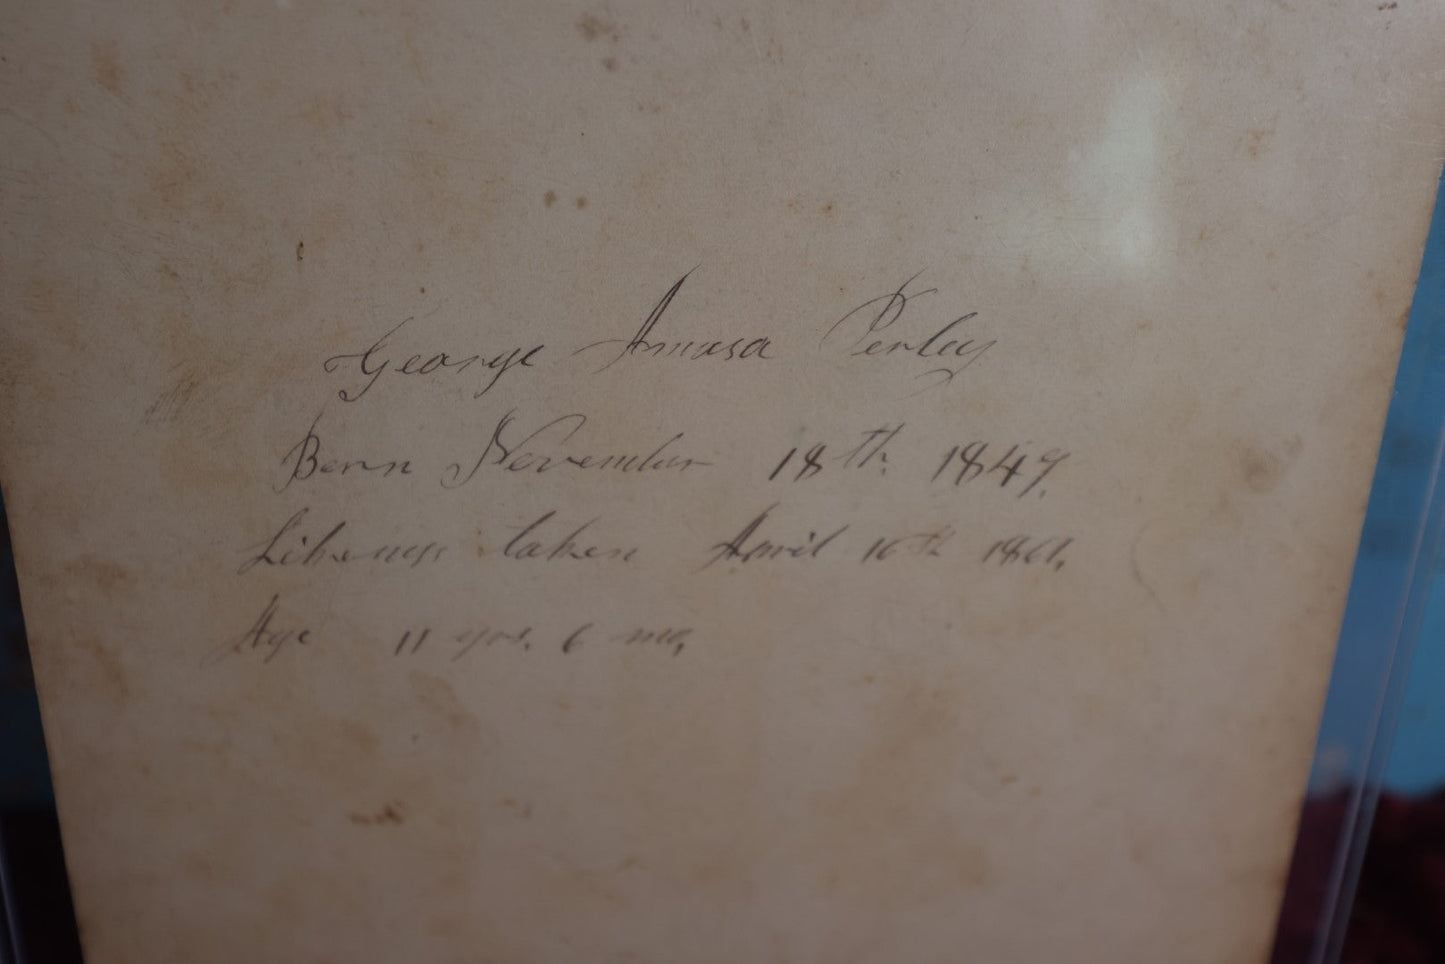 George Amasa Perley
Born November 18th. 1849.
Likeness taken April 16th 1861.
Age 11 yrs. 6 mo.